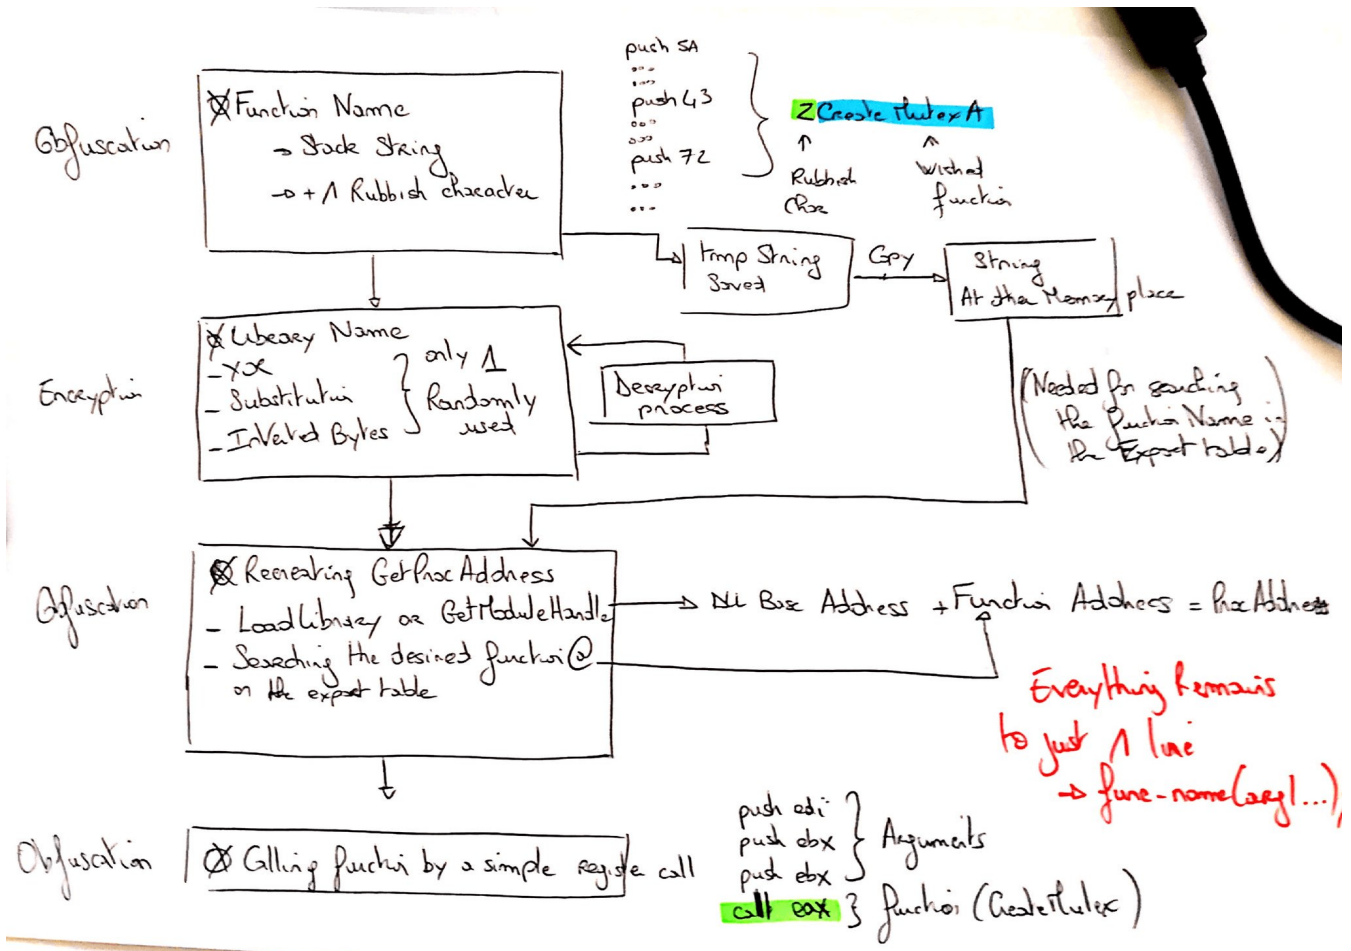 Obfuscation
Function Name
→ Stack String
→ + 1 Rubbish character
push 5A
...
...
push 43
...
...
push 72
...
...
ZCreateMutexA
↑ ↑
Rubbish
Char
Wished
function
tmp String
Saved
Copy
String
At other Memory place
(Needed for searching
the function Name in
the Export table)
Encryption
Library Name
- XOR
- Substitution
- Inverted Bytes
only 1
Randomly
used
Decryption
process
Obfuscation
Recreating GetProcAddress
- LoadLibrary or GetModuleHandle
- Searching the desired function @
on the export table
Dll Base Address + Function Address = ProcAddress
Everything Remains
to just 1 line
→ func-name(arg1...)
Obfuscation
Calling function by a simple register call
push edi
push ebx
push ebx
Arguments
call eax } function (CreateMutex)